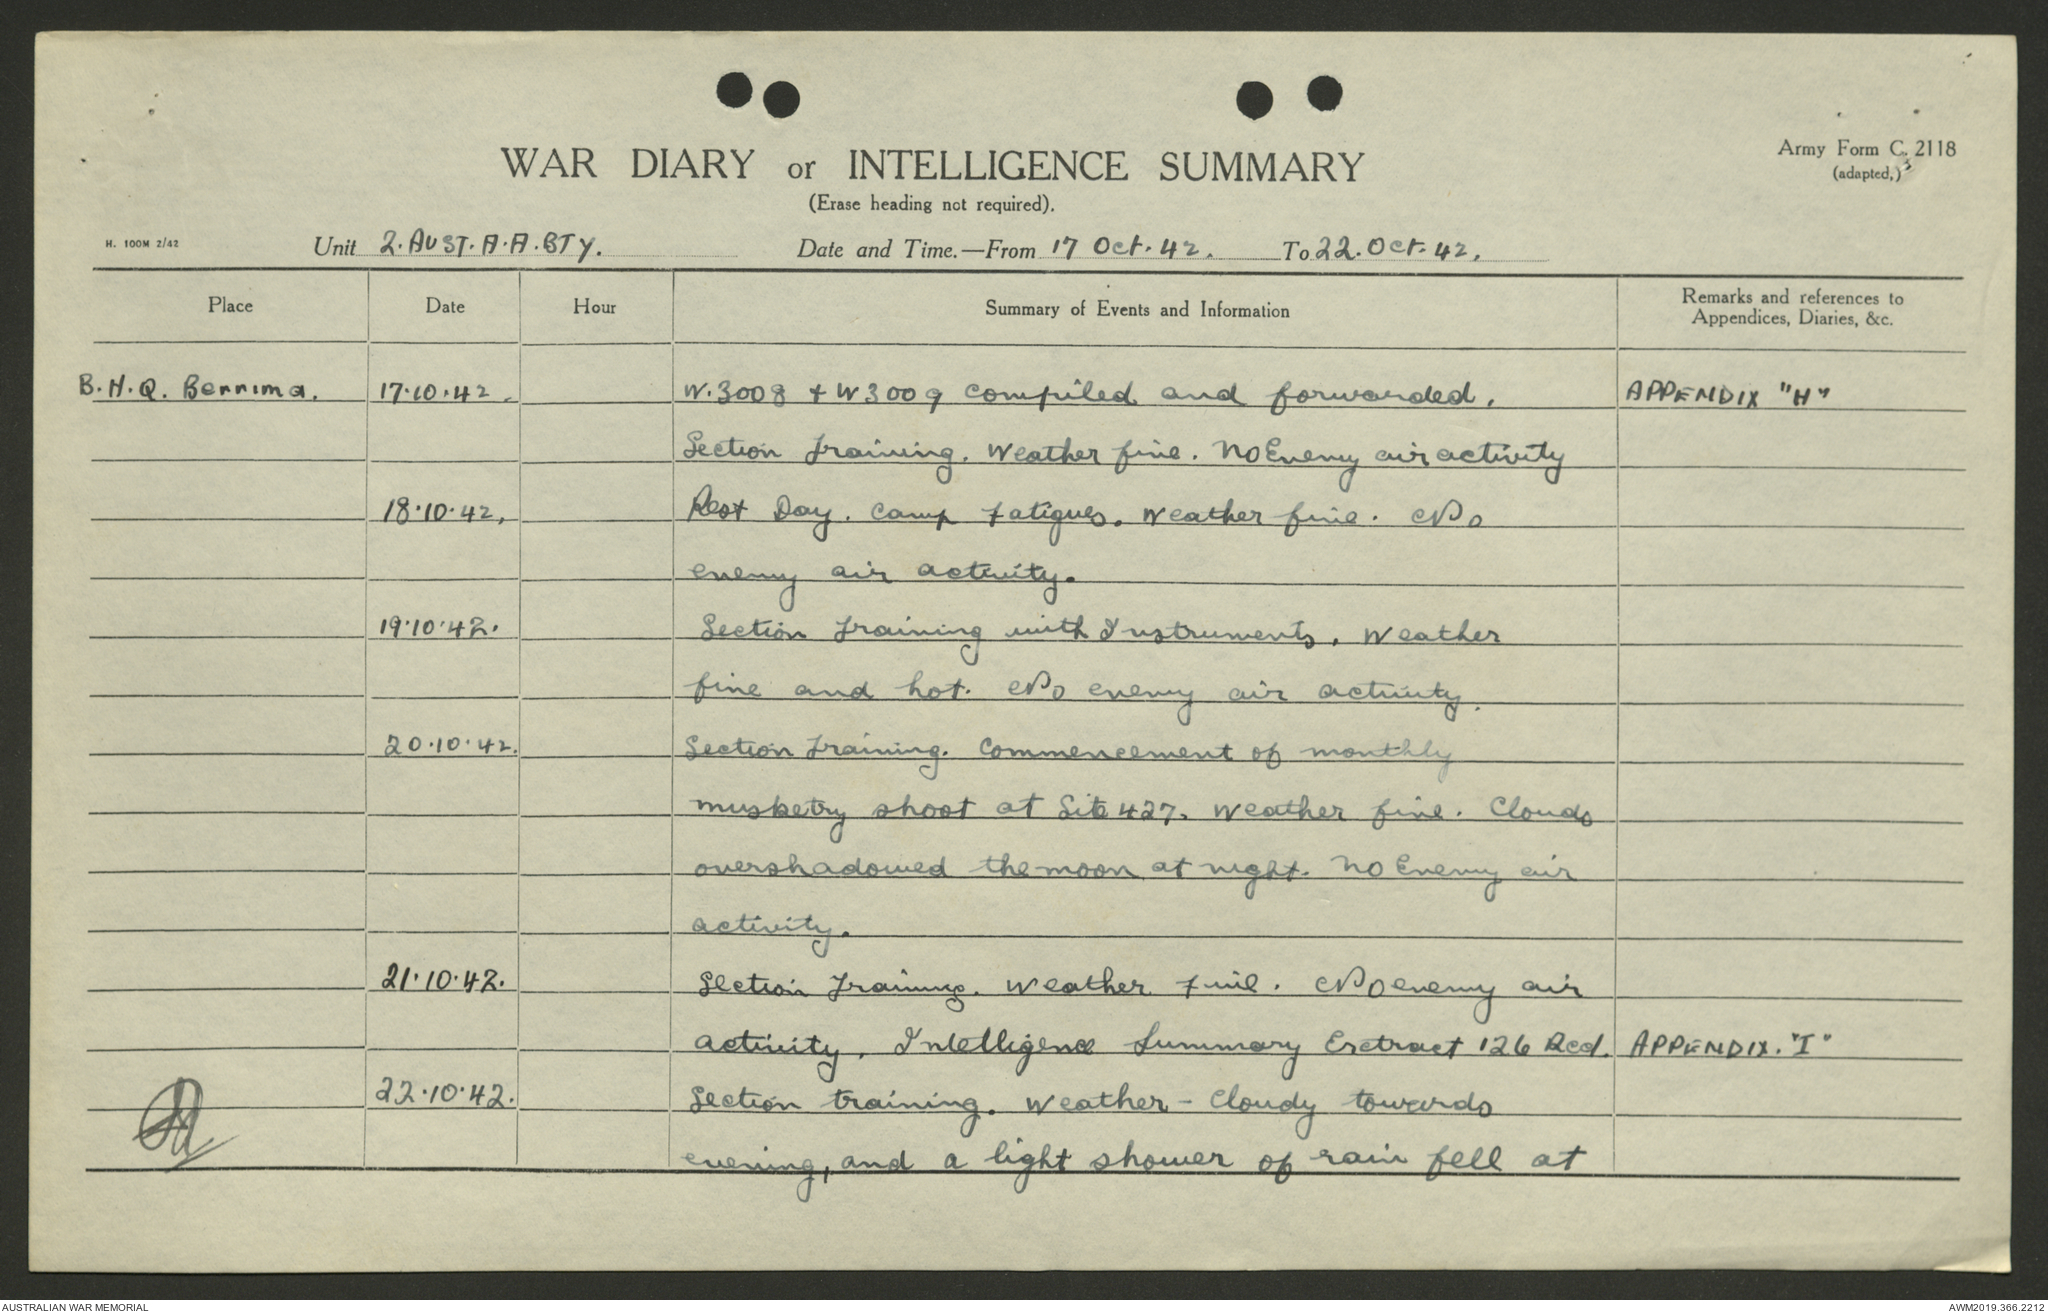 WAR DIARY or INTELLIGENCE SUMMARY
(Erase heading not required).
Army Form C. 2118
(adapted.)
H. 100M 2/42
Unit 2. AUST. A.A. BTY.
Date and Time.—From 17 Oct. 42. To 22. Oct. 42.
Place Date Hour Summary of Events and Information Remarks and references to
Appendices, Diaries, &c.
B.H.Q. Berrima. 17.10.42. W.3008 + W3009 compiled and forwarded. APPENDIX "H"
Section Training. Weather fine. No Enemy air activity
18.10.42. Rest Day. Camp Fatigues. Weather fine. No
enemy air activity.
19.10.42. Section Training with Instruments. Weather
fine and hot. No enemy air activity.
20.10.42. Section Training. Commencement of monthly
musketry shoot at Site 427. Weather fine. Clouds
overshadowed the moon at night. No Enemy air
activity.
21.10.42. Section Training. Weather Fine. No enemy air
activity. Intelligence Summary Extract 126 Rcd. APPENDIX. "I"
22.10.42. Section training. Weather - Cloudy towards
evening, and a light shower of rain fell at
AUSTRALIAN WAR MEMORIAL
AWM2019.366.2212